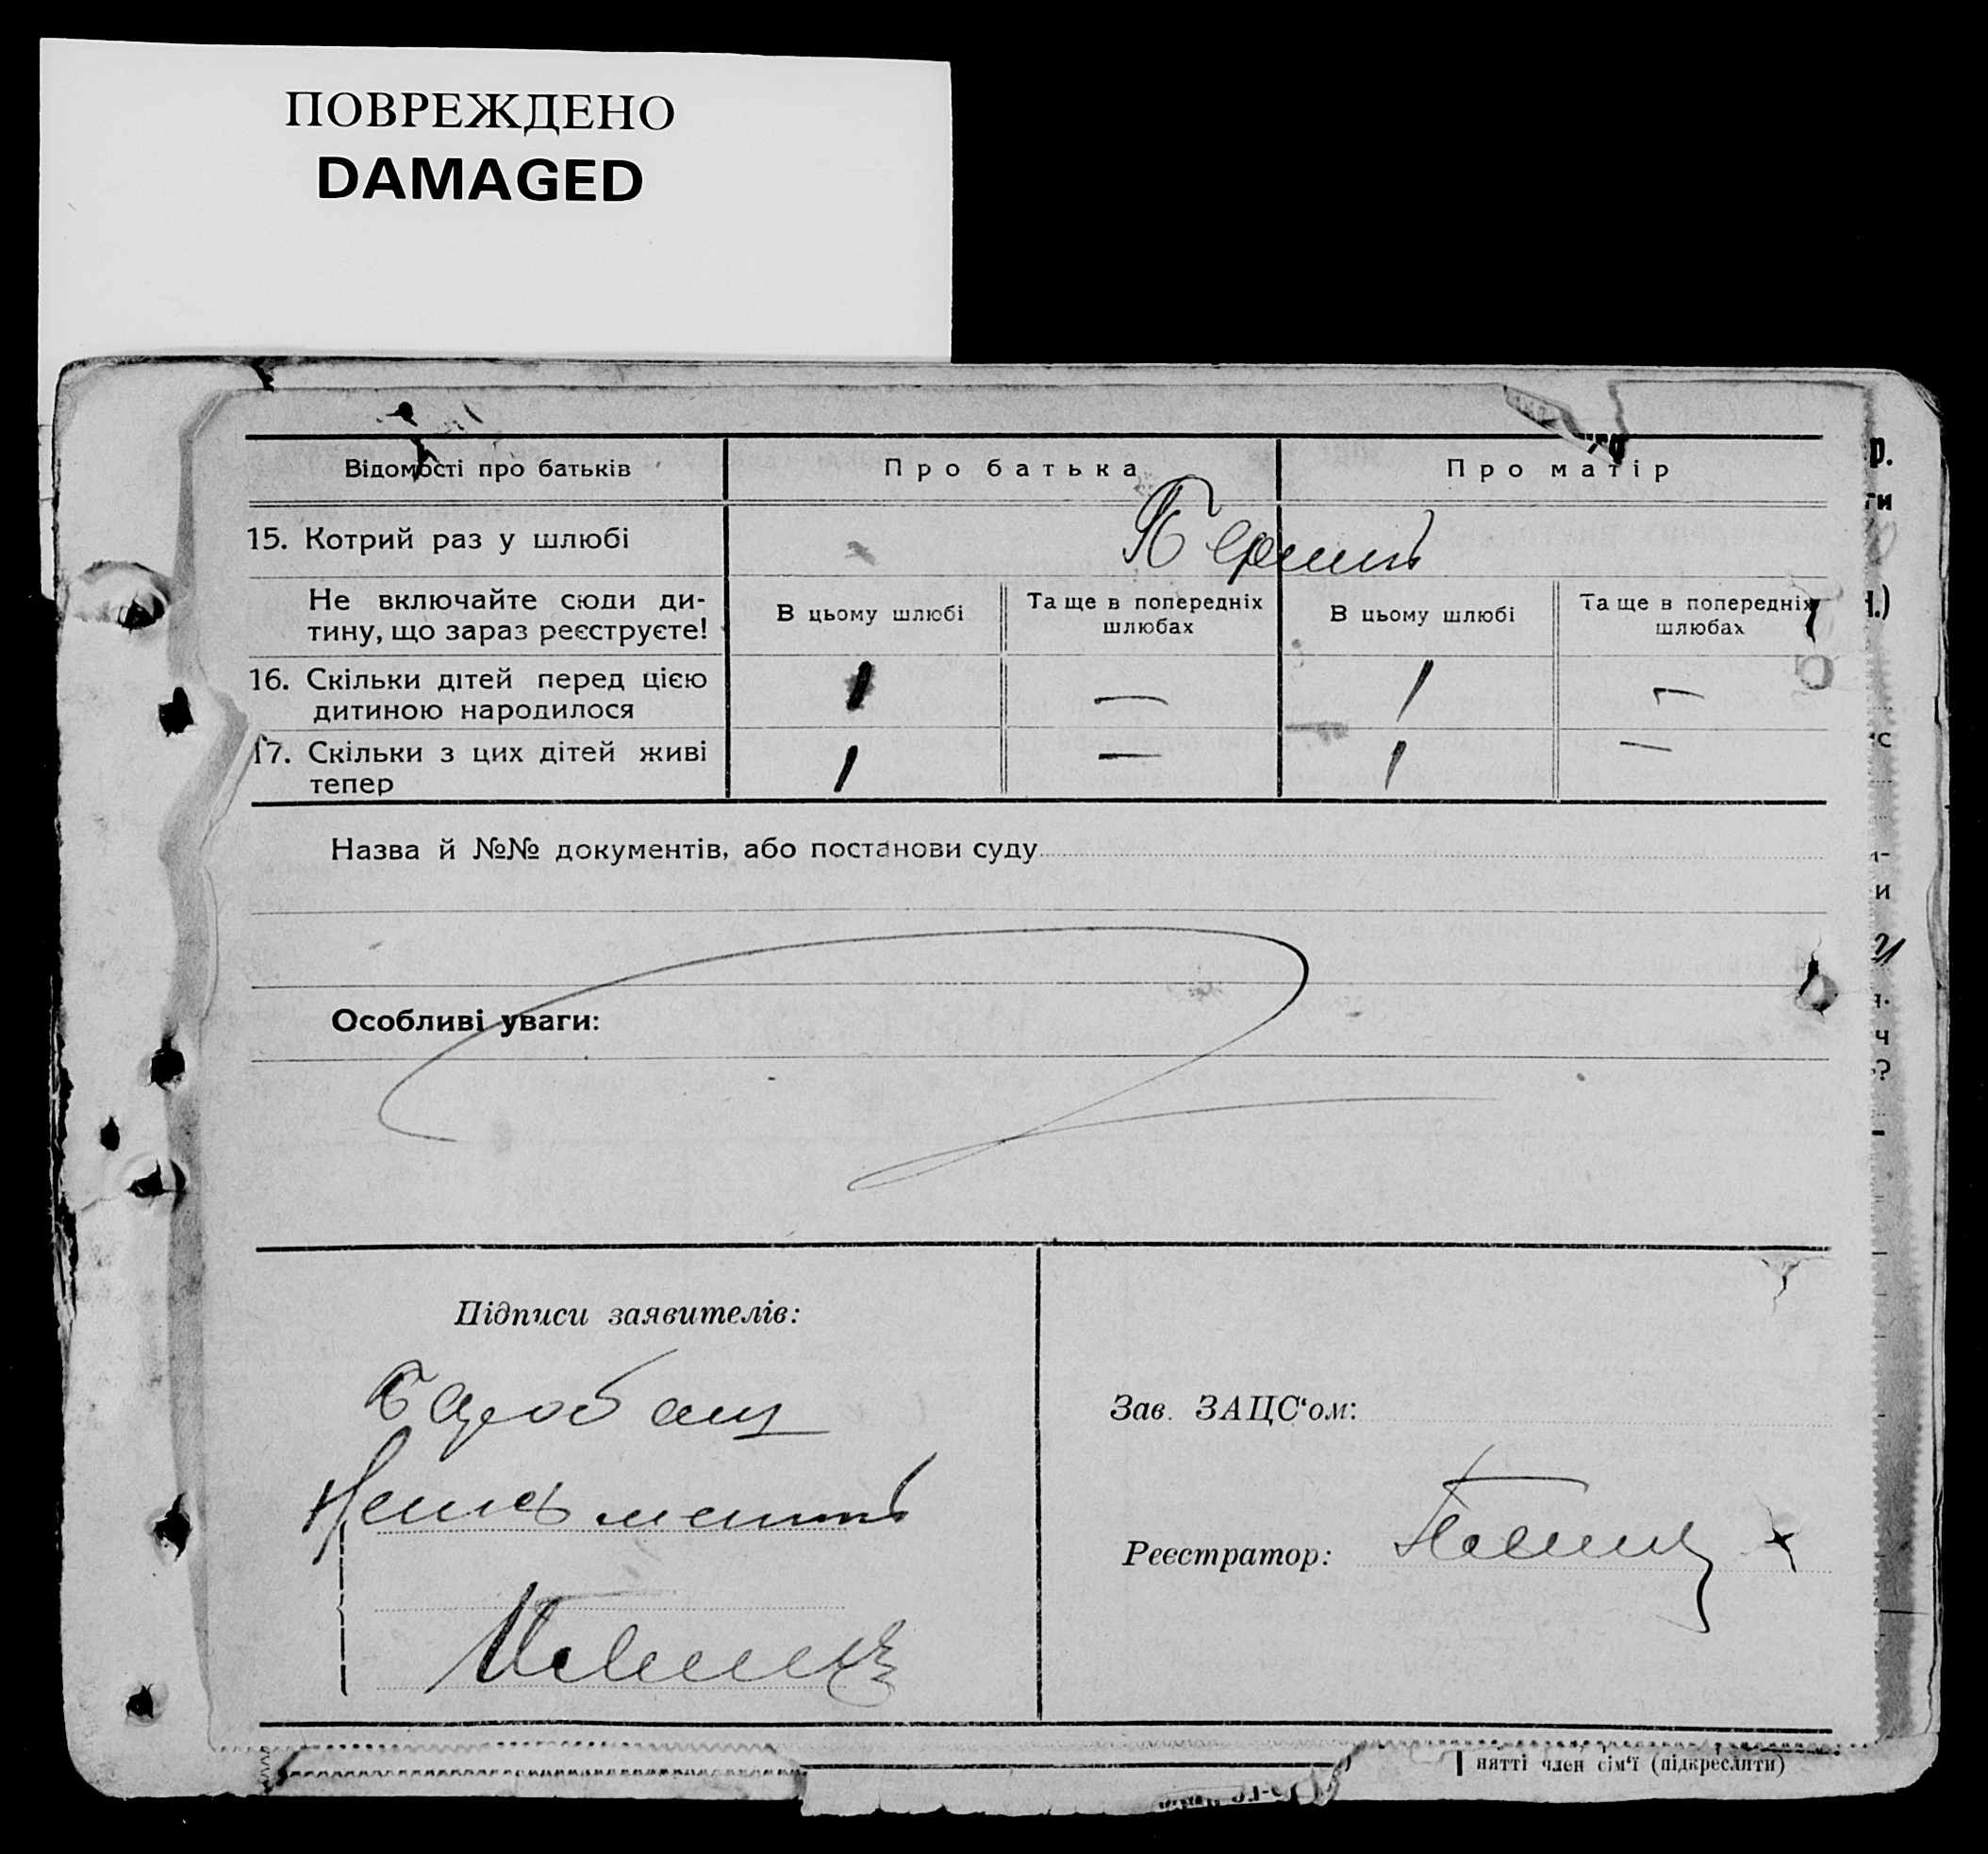 ПОВРЕЖДЕНО
DAMAGED
Відомості про батьків
Про батька
Про матір
15. Котрий раз у шлюбі
Перший
Не включайте сюди ди-
тину, що зараз реєструєте!
В цьому шлюбі
Та ще в попередніх
шлюбах
В цьому шлюбі
Та ще в попередніх
шлюбах
16. Скільки дітей перед цією
дитиною народилося
1 — 1 —
17. Скільки з цих дітей живі
тепер
1 — 1 —
Назва й №№ документів, або постанови суду
Особливі уваги:
Підписи заявителів:
Зав. ЗАЦС'ом:
Реєстратор:
нятті член сім'ї (підкреслити)